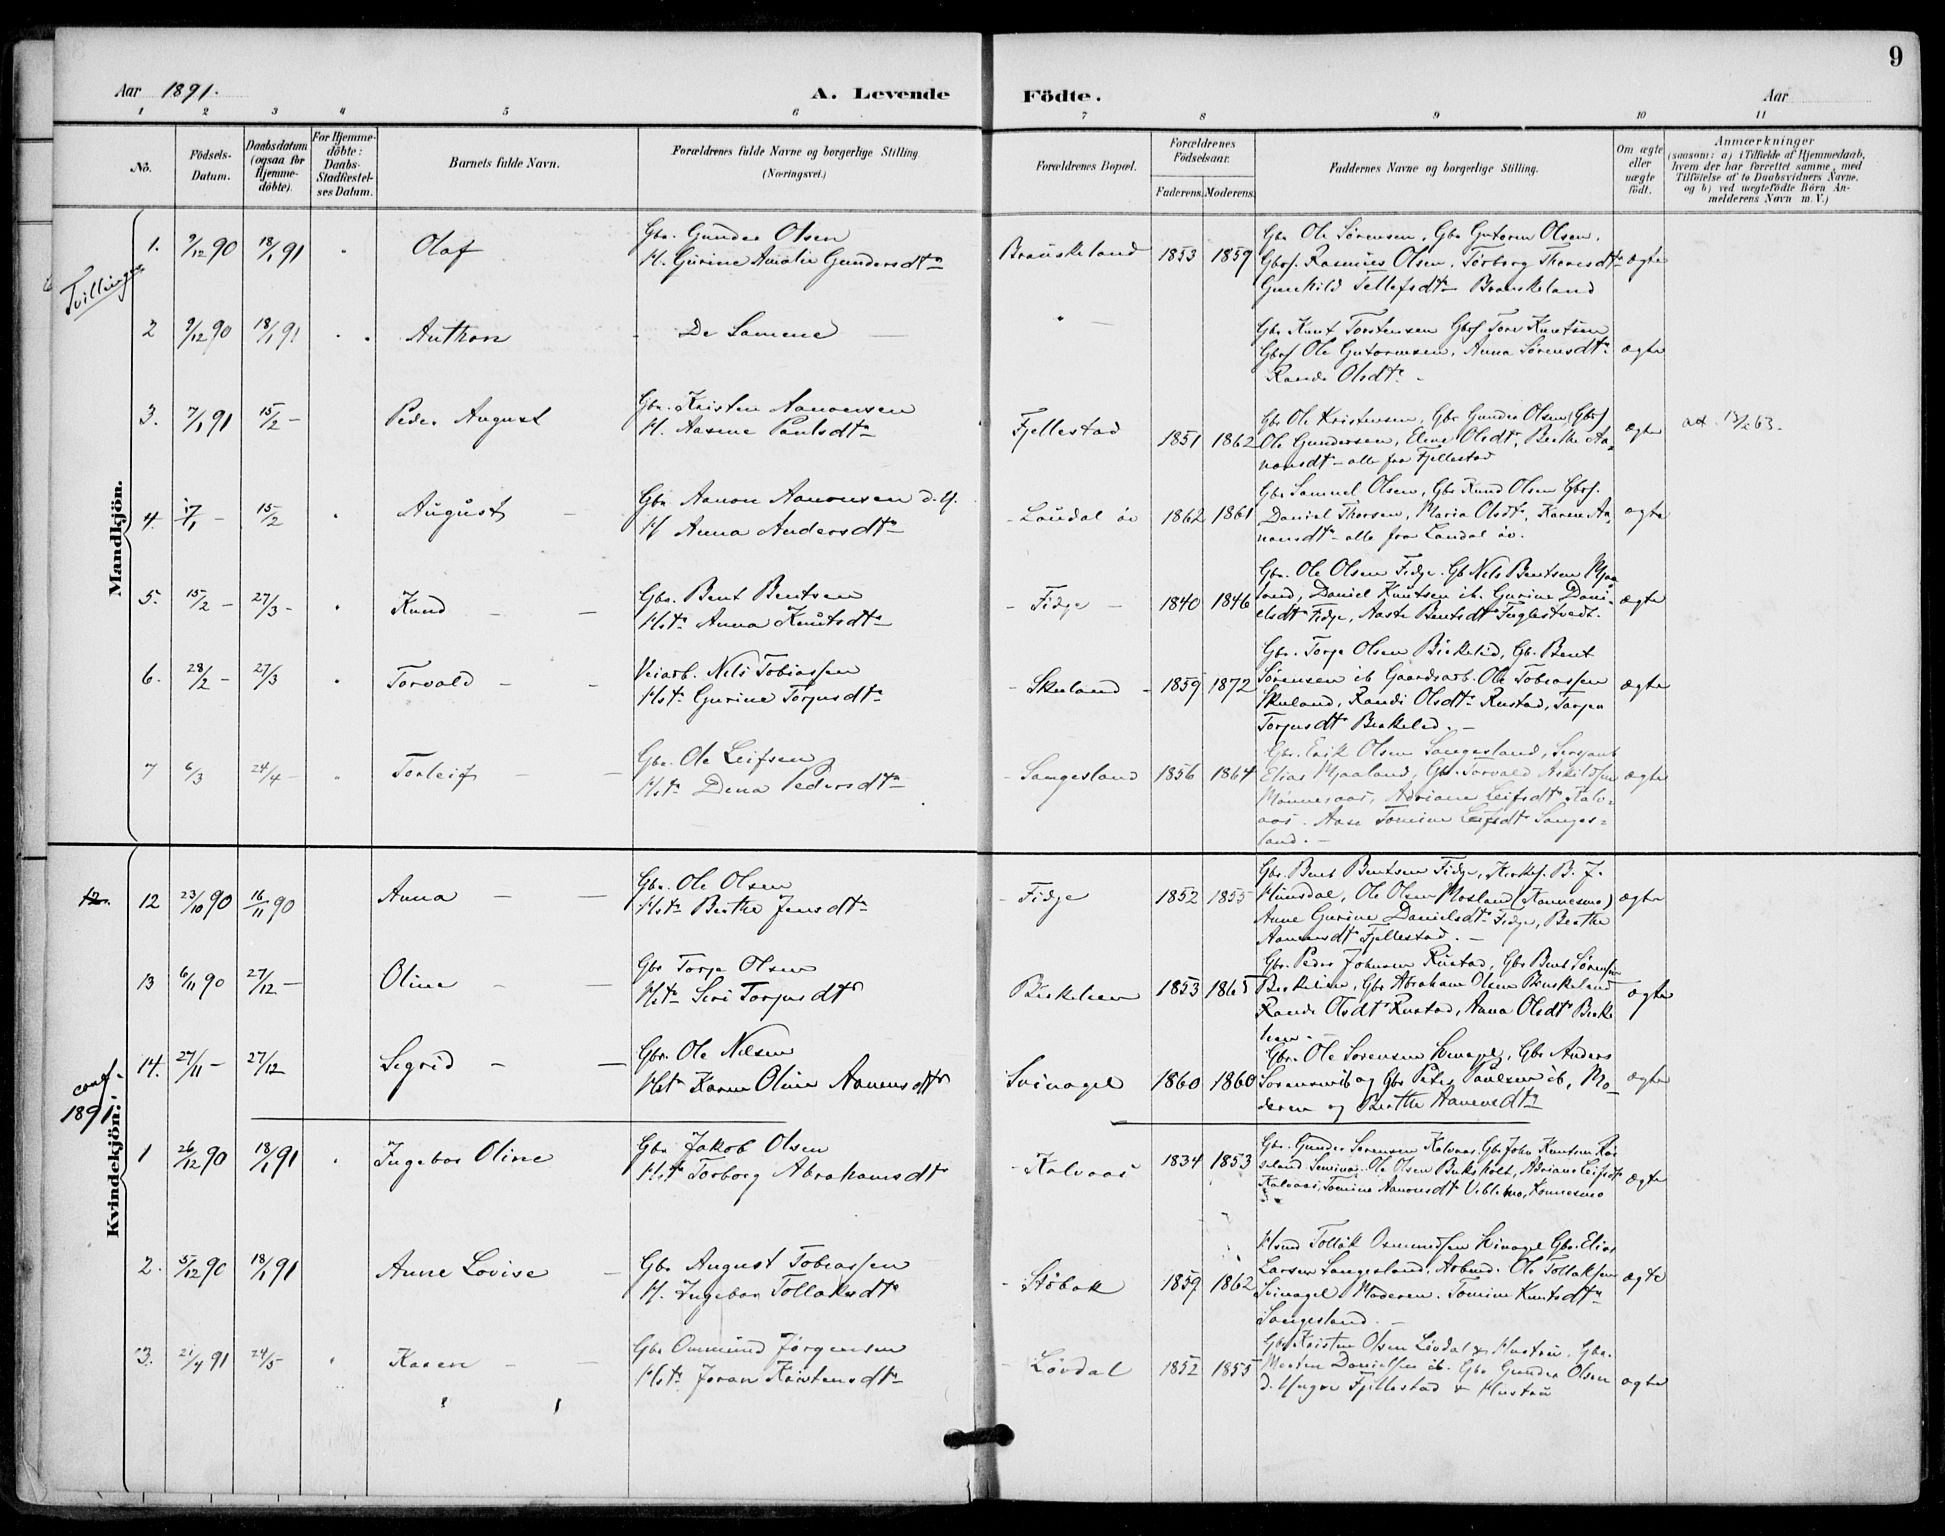 9
Aar 1891.
A. Levende Födte.
Aar
1 2 3 4 5 6 7 8 9 10 11
No.
Födsels-Datum.
Daabsdatum (ogsaa for Hjemme-döbte).
For Hjemme-döbte: Daabs-Stadfæstel-ses Datum.
Barnets fulde Navn.
Forældrenes fulde Navne og borgerlige Stilling.
(Næringsvei.)
Forældrenes Bopæl.
Forældrenes Födselsaar.
Faderens. Moderens.
Faddernes Navne og borgerlige Stilling.
Om ægte eller uægte födt.
Anmærkninger
(saasom: a) i Tilfælde af Hjemmedaab, hvem der har forrettet samme, med Tilföielse af to Daabsvidners Navne, og b) ved uægtefödte Börn Anmelderens Navn m. V.)
Mandkjön.
Tvillinger
1. 9/12 90 18/1 91 Olaf
Gbr. Gunder Olsen
H. Gurine Amalie Gundersdtr
Brauskeland 1853 1859
Gbr Ole Sørensen, Gbr Gutorm Olsen,
Gbrs. Rasmus Olsen, Torborg Thoresdtr
Gunhild Tellefsdtr Brauskeland
ægte
2 9/12 90 18/1 91 Anthon
De Samme
" —
Gbr Knut Torstensen Gbrs Tore Knutsen
Gbrs. Ole Gutormsen, Anna Sørensdtr
Randi Olsdtr.
ægte
3. 7/1 91 15/2 — Peder August
Gbr. Kristen Aanensen
H. Aasene Paulsdtr
Fjellestad 1851 1862
Gbr Ole Kristensen, Gbr Gunder Olsen, Gbrs
Ole Gundersen, Elene Olsdtr, Berthe Aa-
nonsdtr — alle fra Fjellestad
ægte
att. 13/2 63.
4. 17/1 — 15/2 August
Gbr Aanon Aanonsen d. y.
H Anna Andersdtr
Laudal öv 1862 1861
Gbr Samuel Olsen, Gbr Knud Olsen Gbrs.
Daniel Thorsen, Maria Olsdtr, Karen Aa-
nonsdtr — alle fra Laudal öv.
ægte
5. 15/2 — 27/3 — Knud
Gbr. Bent Bentsen
Hstr Anna Knutsdtr
Fidje 1840 1846
Gbr. Ole Olsen Fidje. Gb Nils Bentsen Mjaa
land, Daniel Knutsen ib. Gurine Dani-
elsdtr Fidje, Aaste Bentsdtr Fuglestvedt.
ægte
6. 28/2 — 27/3 Torvald
Veiarb. Nils Tobiassen
Hstr Gurine Torjusdtr
Skuland 1859 1872
Gbr. Torje Olsen Birkelid, Gb. Bent
Sørensen ib Gaardsarb. Ole Tobiassen
Skuland, Randi Olsdtr Rustad, Torjer
Torjusdtr Birkelid.
ægte
7 6/3 24/4 — Torleif
Gbr. Ole Leifsen
Hstr Dina Pedersdtr
Sangesland 1856 1864
Gbr. Erik Olsen Sangesland, Sersjant
Elias Mjaaland, Gb. Torvald Askildsen
Mönnesaas, Adriane Leifsdtr Kalv-
aas. Aase Tomine Leifsdtr Sanges-
land.
ægte
Kvindekjön.
12.
12 23/10 90 16/11 90 Anna
Gbr. Ole Olsen
Hstr Berthe Jensdtr
Fidje 1852 1855
Gbr. Bent Bentsen Fidje, Kirkes. B. J.
Hunsdal, Ole Olsen Mosland (Hannesmo)
Anne Gurine Danielsdtr Fidje, Berthe
Aanensdtr Fjellestad.
ægte
13 6/11 90 27/12 — Oline
Gbr Torje Olsen
Hstr Siri Torjusdtr
Birkelien 1853 1865
Gbr. Peder Johnsen Rustad, Gbr Bent Sørensen
Birkelien, Gbr Abraham Olsen
Randi Olsdtr Rustad, Anna Olsdtr Birke
lien.
ægte
14. 27/11 — 27/12 Sigrid
Gbr. Ole Nilsen
Hstr Karen Oline Aanensdtr
Svinagel 1860 1860
Gbr. Ole Sørensen Svinagel, Gbr Anders
Sørensen ib og Gbr Peter Paulsen ib, Mo-
deren og Berthe Aanensdtr
ægte
conf.
1891.
1 26/12 90 18/1 91 Ingebor Oline
Gbr Jakob Olsen
Hstr Torborg Abrahamsdtr
Kalvaas 1834 1853
Gbr. Gunder Sørensen Kalvaas. Gb John Knutsen
Ole Olsen Birkholt, Adriane Leifsdtr
Kalvaas, Tomine Aanonsdtr
ægte
2. 5/12 90 18/1 91 Anne Lovise
Gbr August Tobiassen
H. Ingebor Tollaksdtr
Stöbak 1859 1862
Tollak Osmundsen Svinagel Gbr. Elias
Larsen Sangesland, Arbmd. Ole Tollaksen
Svinagel Moderen. Tomine Knutsdtr
Sangesland.
ægte
3. 21/4 91 24/5 Karen
Gbr Ommund Jørgensen
Hstr Joran Kristensdtr
Lövdal 1852 1855
Gbr Kristen Olsen Lövdal & Hustru, Gbr.
Morten Danielsen ib. Gbr Gunder Olsen
d. Yngre Fjellestad & Hustru
ægte